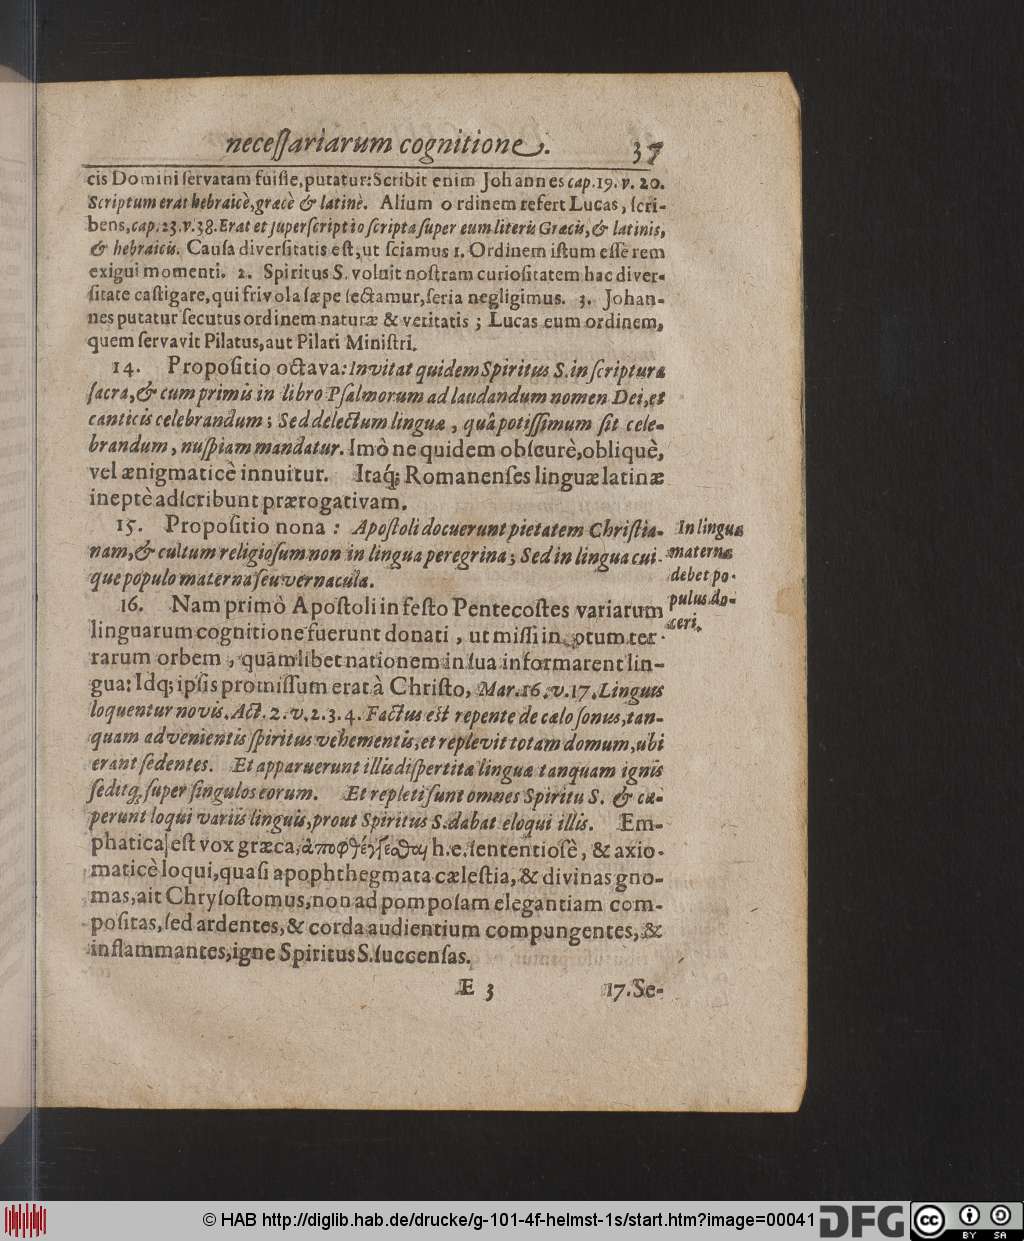 necessariarum cognitione. 37
cis Domini servatam fuisse, putatur: Scribit enim Johannes cap. 19. v. 20.
Scriptum erat hebraicè, græcè & latinè. Alium ordinem refert Lucas, scri-
bens, cap. 23. v. 38. Erat et superscriptio scripta super eum literis Græcis, & latinis,
& hebraicis. Causa diversitatis est, ut sciamus 1. Ordinem istum esse rem
exigui momenti. 2. Spiritus S. voluit nostram curiositatem hac diver-
sitate castigare, qui frivola sæpe sectamur, seria negligimus. 3. Johan-
nes putatur secutus ordinem naturæ & veritatis ; Lucas eum ordinem,
quem servavit Pilatus, aut Pilati Ministri.
14. Propositio octava: Invitat quidem Spiritus S. in scriptura
sacra, & cum primis in libro Psalmorum ad laudandum nomen Dei, et
canticis celebrandum ; Sed delectum linguæ , quâ potissimum sit cele-
brandum , nuspiam mandatur. Imò ne quidem obscurè, obliquè,
vel ænigmaticè innuitur. Itaq; Romanenses linguæ latinæ
ineptè adscribunt prærogativam.
15. Propositio nona : Apostoli docuerunt pietatem Christia-
nam, & cultum religiosum non in lingua peregrina ; Sed in lingua cui-
que populo materna seu vernacula.
In lingua
materna
debet po-
pulus do-
ceri.
16. Nam primò Apostoli in festo Pentecostes variarum
linguarum cognitione fuerunt donati , ut missi in totum ter-
rarum orbem , quamlibet nationem in sua informarent lin-
gua: Idq; ipsis promissum erat à Christo, Mar. 16. v. 17. Linguis
loquentur novis. Act. 2. v. 2. 3. 4. Factus est repente de cælo sonus, tan-
quam advenientis spiritus vehementis, et replevit totam domum, ubi
erant sedentes. Et apparuerunt illis dispertitæ linguæ tanquam ignis
seditq; super singulos eorum. Et repleti sunt omnes Spiritu S. & cæ-
perunt loqui variis linguis, prout Spiritus S. dabat eloqui illis. Em-
phatica est vox græca, ἀποφθέγγεσθαι h. e. sententiosè, & axio-
maticè loqui, quasi apophthegmata cælestia, & divinas gno-
mas, ait Chrysostomus, non ad pomposam elegantiam com-
positas, sed ardentes, & corda audientium compungentes, &
inflammantes, igne Spiritus S. succensas.
Æ 3 17. Se-
© HAB http://diglib.hab.de/drucke/g-101-4f-helmst-1s/start.htm?image=00041 DFG CC BY SA